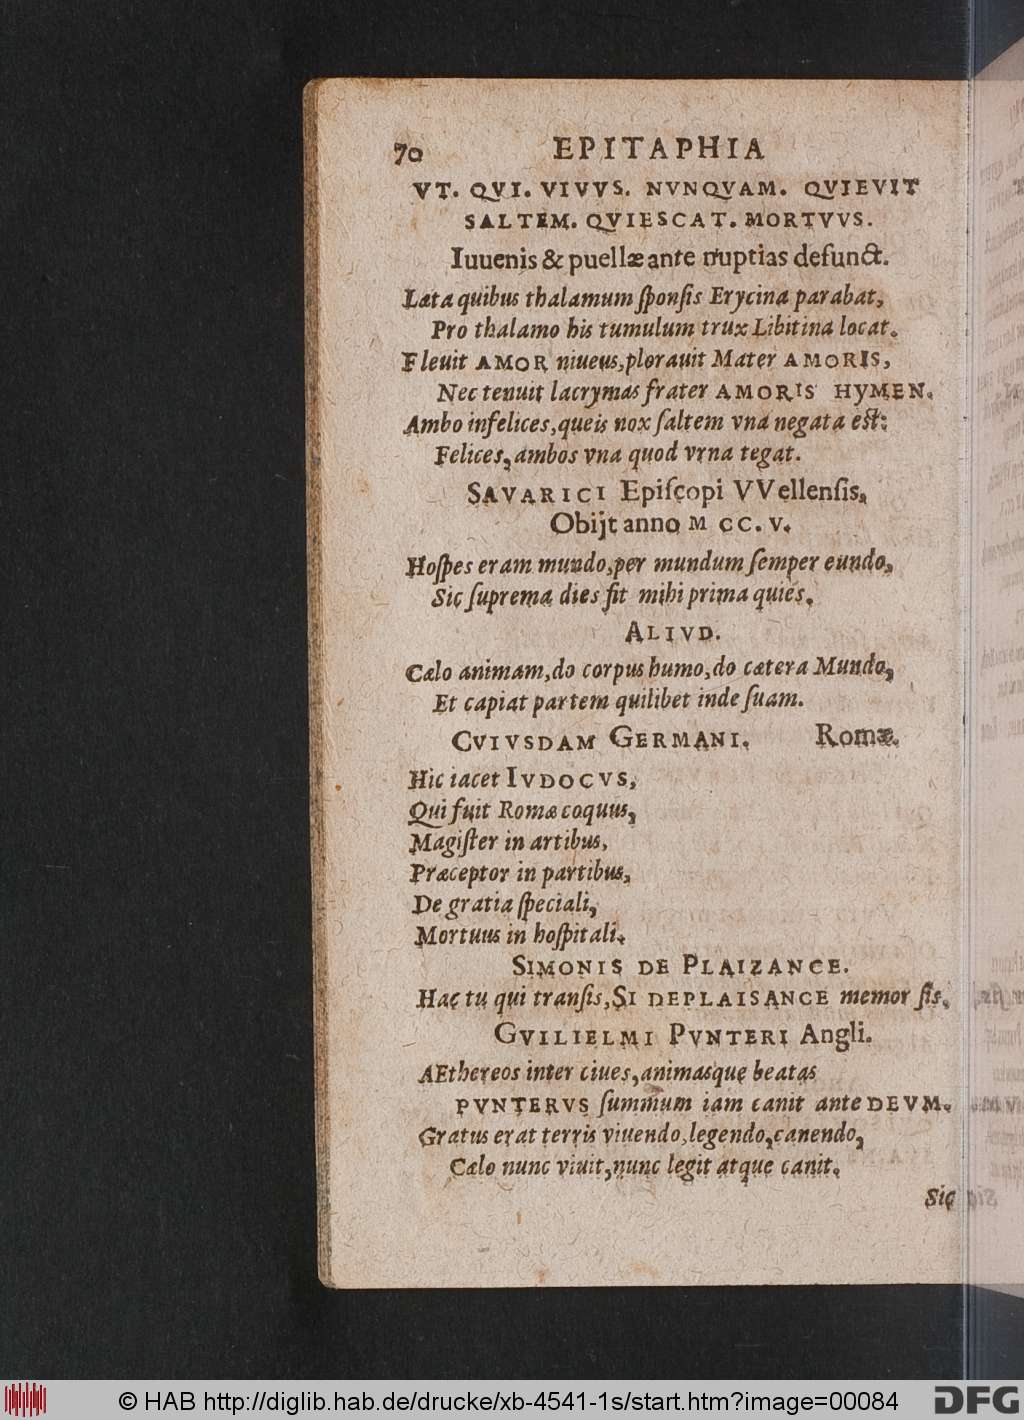 70 EPITAPHIA
VT. QVI. VIVVS. NVNQVAM. QVIEVIT
SALTEM. QVIESCAT. MORTVVS.
Iuuenis & puellæ ante nuptias defunct.
Læta quibus thalamum ſponſis Erycina parabat,
Pro thalamo his tumulum trux Libitina locat.
Fleuit AMOR niueus, plorauit Mater AMORIS,
Nec tenuit lacrymas frater AMORIS HYMEN.
Ambo infelices, queis nox ſaltem vna negata eſt:
Felices, ambos vna quod vrna tegat.
SAVARICI Epiſcopi VVellenſis,
Obijt anno M CC. V.
Hoſpes eram mundo, per mundum ſemper eundo,
Sic ſuprema dies fit mihi prima quies.
ALIVD.
Cælo animam, do corpus humo, do cætera Mundo,
Et capiat partem quilibet inde ſuam.
CVIVSDAM GERMANI. Romæ.
Hic iacet IVDOCVS,
Qui fuit Romæ coquus,
Magiſter in artibus,
Præceptor in partibus,
De gratia ſpeciali,
Mortuus in hoſpitali.
SIMONIS DE PLAIZANCE.
Hac tu qui tranſis, SI DEPLAISANCE memor ſis.
GVILIELMI PVNTERI Angli.
AEthereos inter ciues, animasque beatas
PVNTERVS ſummum iam canit ante DEVM.
Gratus erat terris viuendo, legendo, canendo,
Cælo nunc viuit, nunc legit atque canit.
Sic
© HAB http://diglib.hab.de/drucke/xb-4541-1s/start.htm?image=00084
DFG